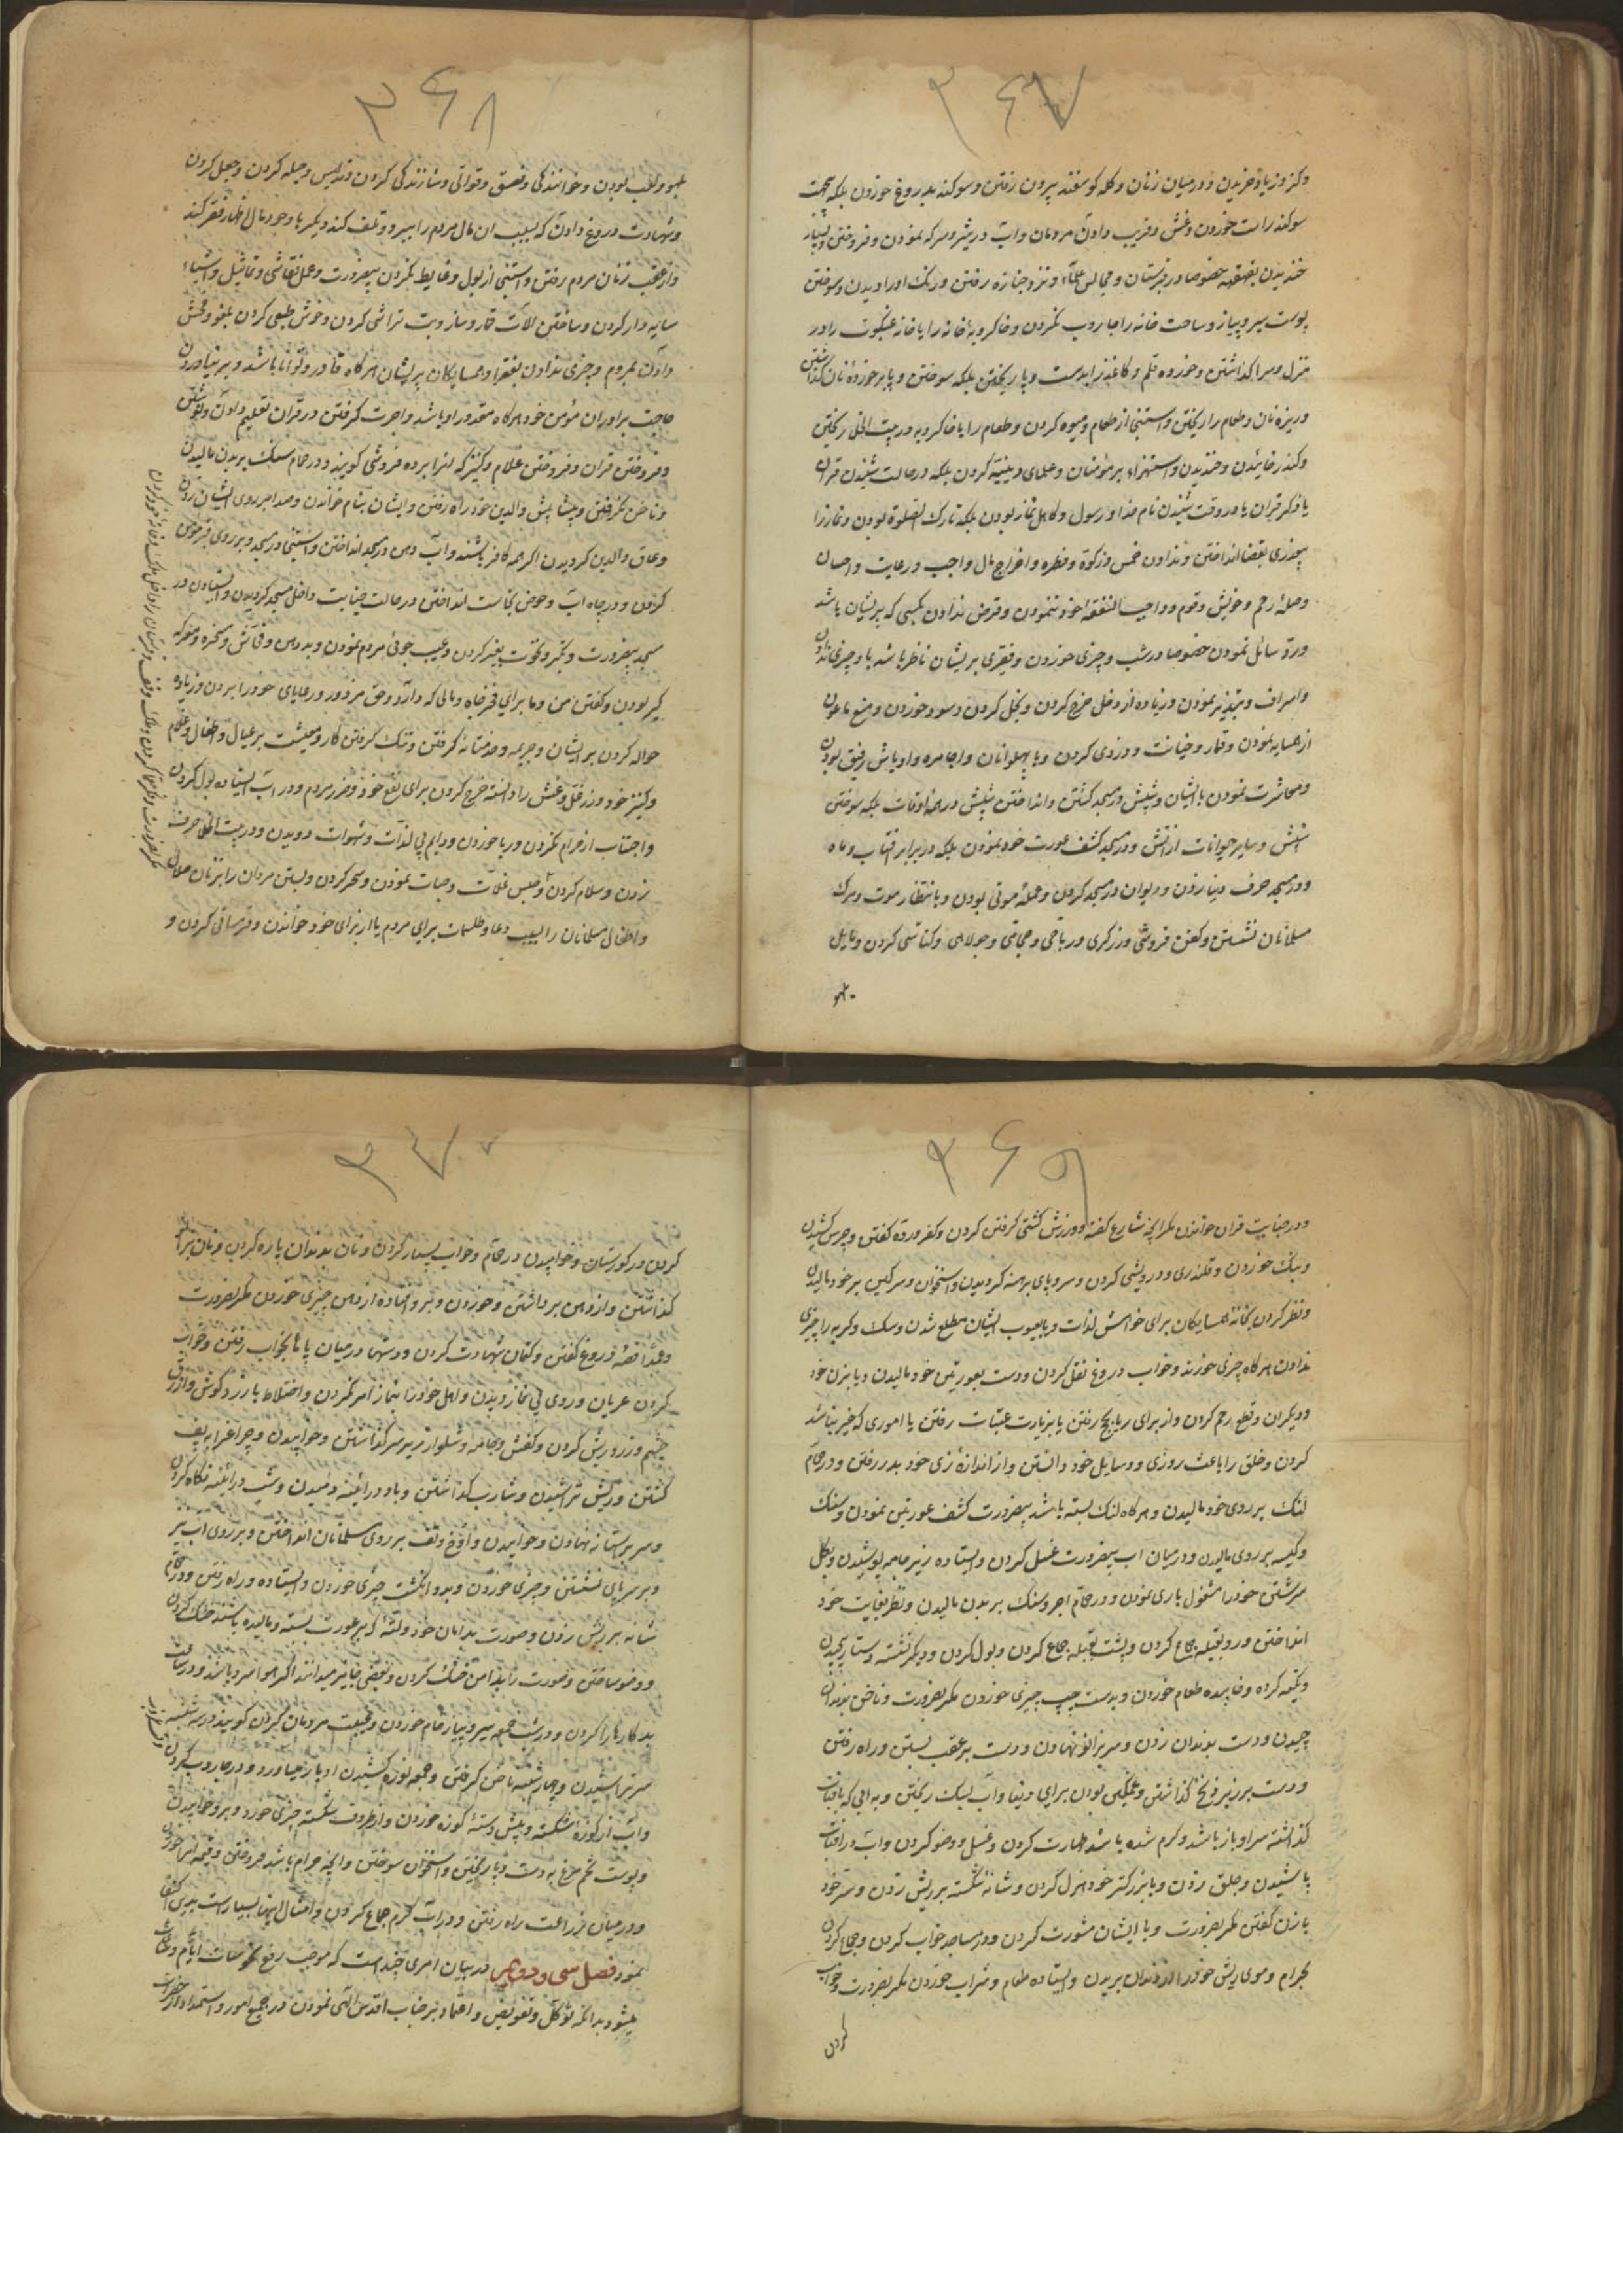 ۳۶۷
وکز وزیاد خریدن ودرمیان زنان وکله کوسفند بیرون رفتن وسوکند بدروغ خوردن بلکه بجهت
سوکند راست خوردن وغش وفریب دادن مردمان واب در شیر وسرکه نمودن وفروختن وبسیار
خندیدن بقهقهه خصوصا در قبرستان ومجالس علماء ونزد جنازه رفتن ورنک او را دیدن وسوختن
پوست سیر وپیاز وساحت خانه را جاروب نکردن وخاکروبه خانه را یا خانه عنکبوت را در
منزل وسرا کذاشتن وخورده قلم وکاغذ را بدست وپا ریختن بلکه سوختن وپا بر خورده نان کذاشتن
وریزه نان وطعام را ریختن واستنجی از طعام ومیوه کردن وطعام را با خاکروبه در بیت الخلا ریختن
وکندر خائیدن وخندیدن واستهزاء بر مؤمنان وعلمای دینیه کردن بلکه در حالت شنیدن قران
یا ذکر قران یا در وقت شنیدن نام خدا ورسول وکاهل نماز بودن بلکه تارک الصلوة بودن ونماز را
بی‌عذری بقضا انداختن وندادن خمس وزکوة وفطره واخراج مال واجب ورعایت واحسان
وصلهٔ رحم وخویش وقوم وواجب النفقهٔ خود ننمودن وقرض ندادن بکسی که پریشان باشد
ورد سائل نمودن خصوصا در شب وچیزی خوردن وفقیری بر ایشان ناظر باشد با وچیزی ندادن
واسراف وتبذیر نمودن وزیاده از دخل خرج کردن وبخل کردن وسود خوردن ومنع ماعون
از همسایه نمودن وقمار وخیانت ودزدی کردن وبا پهلوانان واجامره واوباش رفیق بودن
ومعاشرت نمودن با ایشان وشپش در مسجد کشتن وانداختن شپش در همهٔ اوقات بلکه سوختن
شپش وسایر حیوانات از اتش ودر مسجد کشف عورت خود نمودن بلکه در برابر افتاب وماه
ودر مسجد حرف دنیا زدن ودیوان در مسجد کردن وعملهٔ موتی بودن وبانتظار موت ومرک
مسلمانان نشستن وکفن فروشی وزرکری ورباحی وحجامی وجولاهی وکناسی کردن ومایل
بلهو
۳۶۸
بلهو ولعب بودن وخوانندکی وفسق وقوالی وسازندکی کردن وتدلیس وحیله کردن وجعل کردن
وشهادت دروغ دادن که بسبب ان مال مردم را ببرد وتلف کند دیکر با وجود مال اظهار فقر کند
واز عقب زنان مردم رفتن واستنجی از بول وغایط نکردن بیضرورت وعمل نقاشی وتماثیل واشیاء
سایه دار کردن وساختن الات قمار وساز وبت تراشی کردن وخوش طبعی کردن بلغو وفحش
دادن بمردم وچیزی ندادن بفقرا وهمسایکان پریشان هرکاه قادر وتوانا باشد وبر نیاوردن
حاجت برادران مؤمن خود هرکاه مقدور او باشد واجرت کرفتن در قران تعلیم دادن ونوشتن
وفروختن قران وفروختن غلام وکنیز که انرا برده فروشی کویند ودر حمام سنک بر بدن مالیدن
وناخن نکرفتن وپیشا پیش والدین خود راه رفتن وایشان بنام خواندن وصدا بر روی ایشان زدن
وعاق والدین کردیدن اکرچه کافر باشند واب دهن در مسجد انداختن واستنجی در مسجد وبر روی قبر خوض
کردن ودر چاه اب وحوض نجاست انداختن در حالت جنابت داخل مسجد کردیدن وایستادن در
مسجد بیضرورت وتکبر وتخوت بغیر کردن وعیب جوئی مردم نمودن وبد دهن وفحاش ومسخره ومعرکه
کیر بودن وکفتن من وما برای فخر جاه ومالی که دارد وحق مزدور ورعایای خود را بردن وزیاده
حواله کردن بر ایشان وجریمه وخدمتانه کرفتن وتنک کرفتن کار ومعیشت بر عیال واطفال وغلام
وکنیز خود وزر دغل وغش را دانسته خرج کردن برای نفع خود وضرر مردم ودر اب ایستاده بول کردن
واجتناب از حرام نکردن وربا خوردن ودایم پی لذات وشهوات دویدن ودر بیت الخلا حرف
زدن وسلام کردن وحبس غلات وحبات نمودن وسحر کردن وبستن مردان را بزنان حلال
واطفال مسلمانان را بسبب دعا وطلسمات برای مردم یا از برای خود خواندن وقرساقی کردن و
۳۶۹
ودر جنابت قران خواندن مکر انچه شارع کفته وورزش کشتی کرفتن کردن وکفر ورده کفتن وچرس کشیدن
وبنک خوردن وقلندری ودرویشی کردن وسر وپای برهنه کردیدن واستخوان وسرکین بر خود مالیدن
ونظر کردن بخانه همسایکان برای خواهش لذات ویا بعیوب ایشان مطلع شدن وسک وکربه را چیزی
ندادن هرکاه چیزی خورند وخواب دروغ نقل کردن ودست بعورتین خود مالیدن ویا بزن خود
ودیکران وقطع رحم کردن واز برای ریا بحج رفتن یا بزیارت عتبات رفتن یا اموری که خیر نباشد
کردن وخلق را باعث روزی ووسایل خود دانستن واز اندازهٔ زی خود بدر رفتن ودر حمام
لنک بر روی خود مالیدن وهرکاه لنک بسته باشد بیضرورت کشف عورتین نمودن وسنک
وکیسه بر روی مالیدن ودرمیان اب بیضرورت غسل کردن وایستاده زیر جامه پوشیدن وبکل
سرشتن خود را مشغول بازی نمودن ودر حمام اجر وسنک بر بدن مالیدن ونظر بغایت خود
انداختن ورو بقبله جماع کردن وپشت بقبله جماع کردن وبول کردن ودیکر نشسته دستار پیچیدن
وتکیه کرده وخوابیده طعام خوردن وبدست چپ چیزی خوردن مکر بضرورت وناخن بدندان
چیدن ودست بدندان زدن وسر بزانو نهادن ودست بر عقب بستن وراه رفتن
ودست بر زیر زنخ کذاشتن وغمکین بودن برای دنیا واب لیک ریختن وبه ابی که بافتاب
کذاشته سر او باز باشد وکرم شده باشد طهارت کردن وغسل ووضو کردن واب در افتاب
پاشیدن وجلق زدن وبا بزرکتر خود هزل کردن وشانهٔ شکسته بر ریش زدن وسر خود
با زن کفتن مکر بضرورت وبا ایشان مشورت کردن ودر مساجد خواب کردن وجماع کردن
بحرام وموی ریش خود را از دندان بریدن وایستاده طعام وشراب خوردن مکر بضرورت وخواب
کردن
۳۷۰
کردن در کورستان وخوابیدن در حمام وخواب بسیار کردن ونان بدندان پاره کردن ونان برانو
کذاشتن واز دهن برداشتن وخوردن وبر وافتاده از دهن چیزی خوردن مکر بضرورت
وعمدا قصهٔ دروغ کفتن وکتمان شهادت کردن ودستها درمیان پا ها بخواب رفتن وخواب
کردن عریان وروی بی نماز دیدن واهل خود را بنماز امر نکردن واختلاط با زرد کوش وازرق
چشم وزرد ریش کردن وکفش وجامه وشلوار زیر سر کذاشتن وخوابیدن وچراغ را بپف
کشتن وریش تراشیدن وشارب کذاشتن وباد در ائینه دمیدن وشب در ائینه نکاه کردن
وسر بر استانه نهادن وخوابیدن واوخ وتف بر روی مسلمانان انداختن وبر روی اب نیز
وبر سر پای نشستن وچیزی خوردن وبدو انکشت چیزی خوردن وایستاده وراه رفتن ودر حمام
شانه بر ریش زدن وصورت بدامان خود ولته که بر عورت بسته ومالیده باشند خشک کردن
ووضو ساختن وصورت را بدامن خشک کردن وبعضی جایز میدانند اکر هوا سرد باشد ودر ساعت
بد کارها را کردن ودر شب جمعه سیر وپیاز خام خوردن وغیبت مردمان کردن کویند در سه شنبه
سر تراشیدن وچهارشنبه ناخن کرفتن وجمعه نوره کشیدن ادبار میاورد ودر جاروب کردن
واب از کوزهٔ شکسته وپیش دستهٔ کوزه خوردن واز ظروف شکسته چیزی خورد وبر وخوابیدن
وپوست تخم مرغ به دست وپا ریختن واستخوان سوختن وانچه حرام باشد فروختن وقیمت انرا خوردن
ودرمیان زراعت راه رفتن ودر اب کرم جماع کردن وامثال اینها بسیار است بدین اکتفا
نمود فصل سی ودویم در بیان امری چند است که موجب رفع نحوسات ایام وساعات
میشود بدانکه توکل وتفویض واعتماد بر جناب اقدس الهی نمودن در جمیع امور واستمداد از حضرات